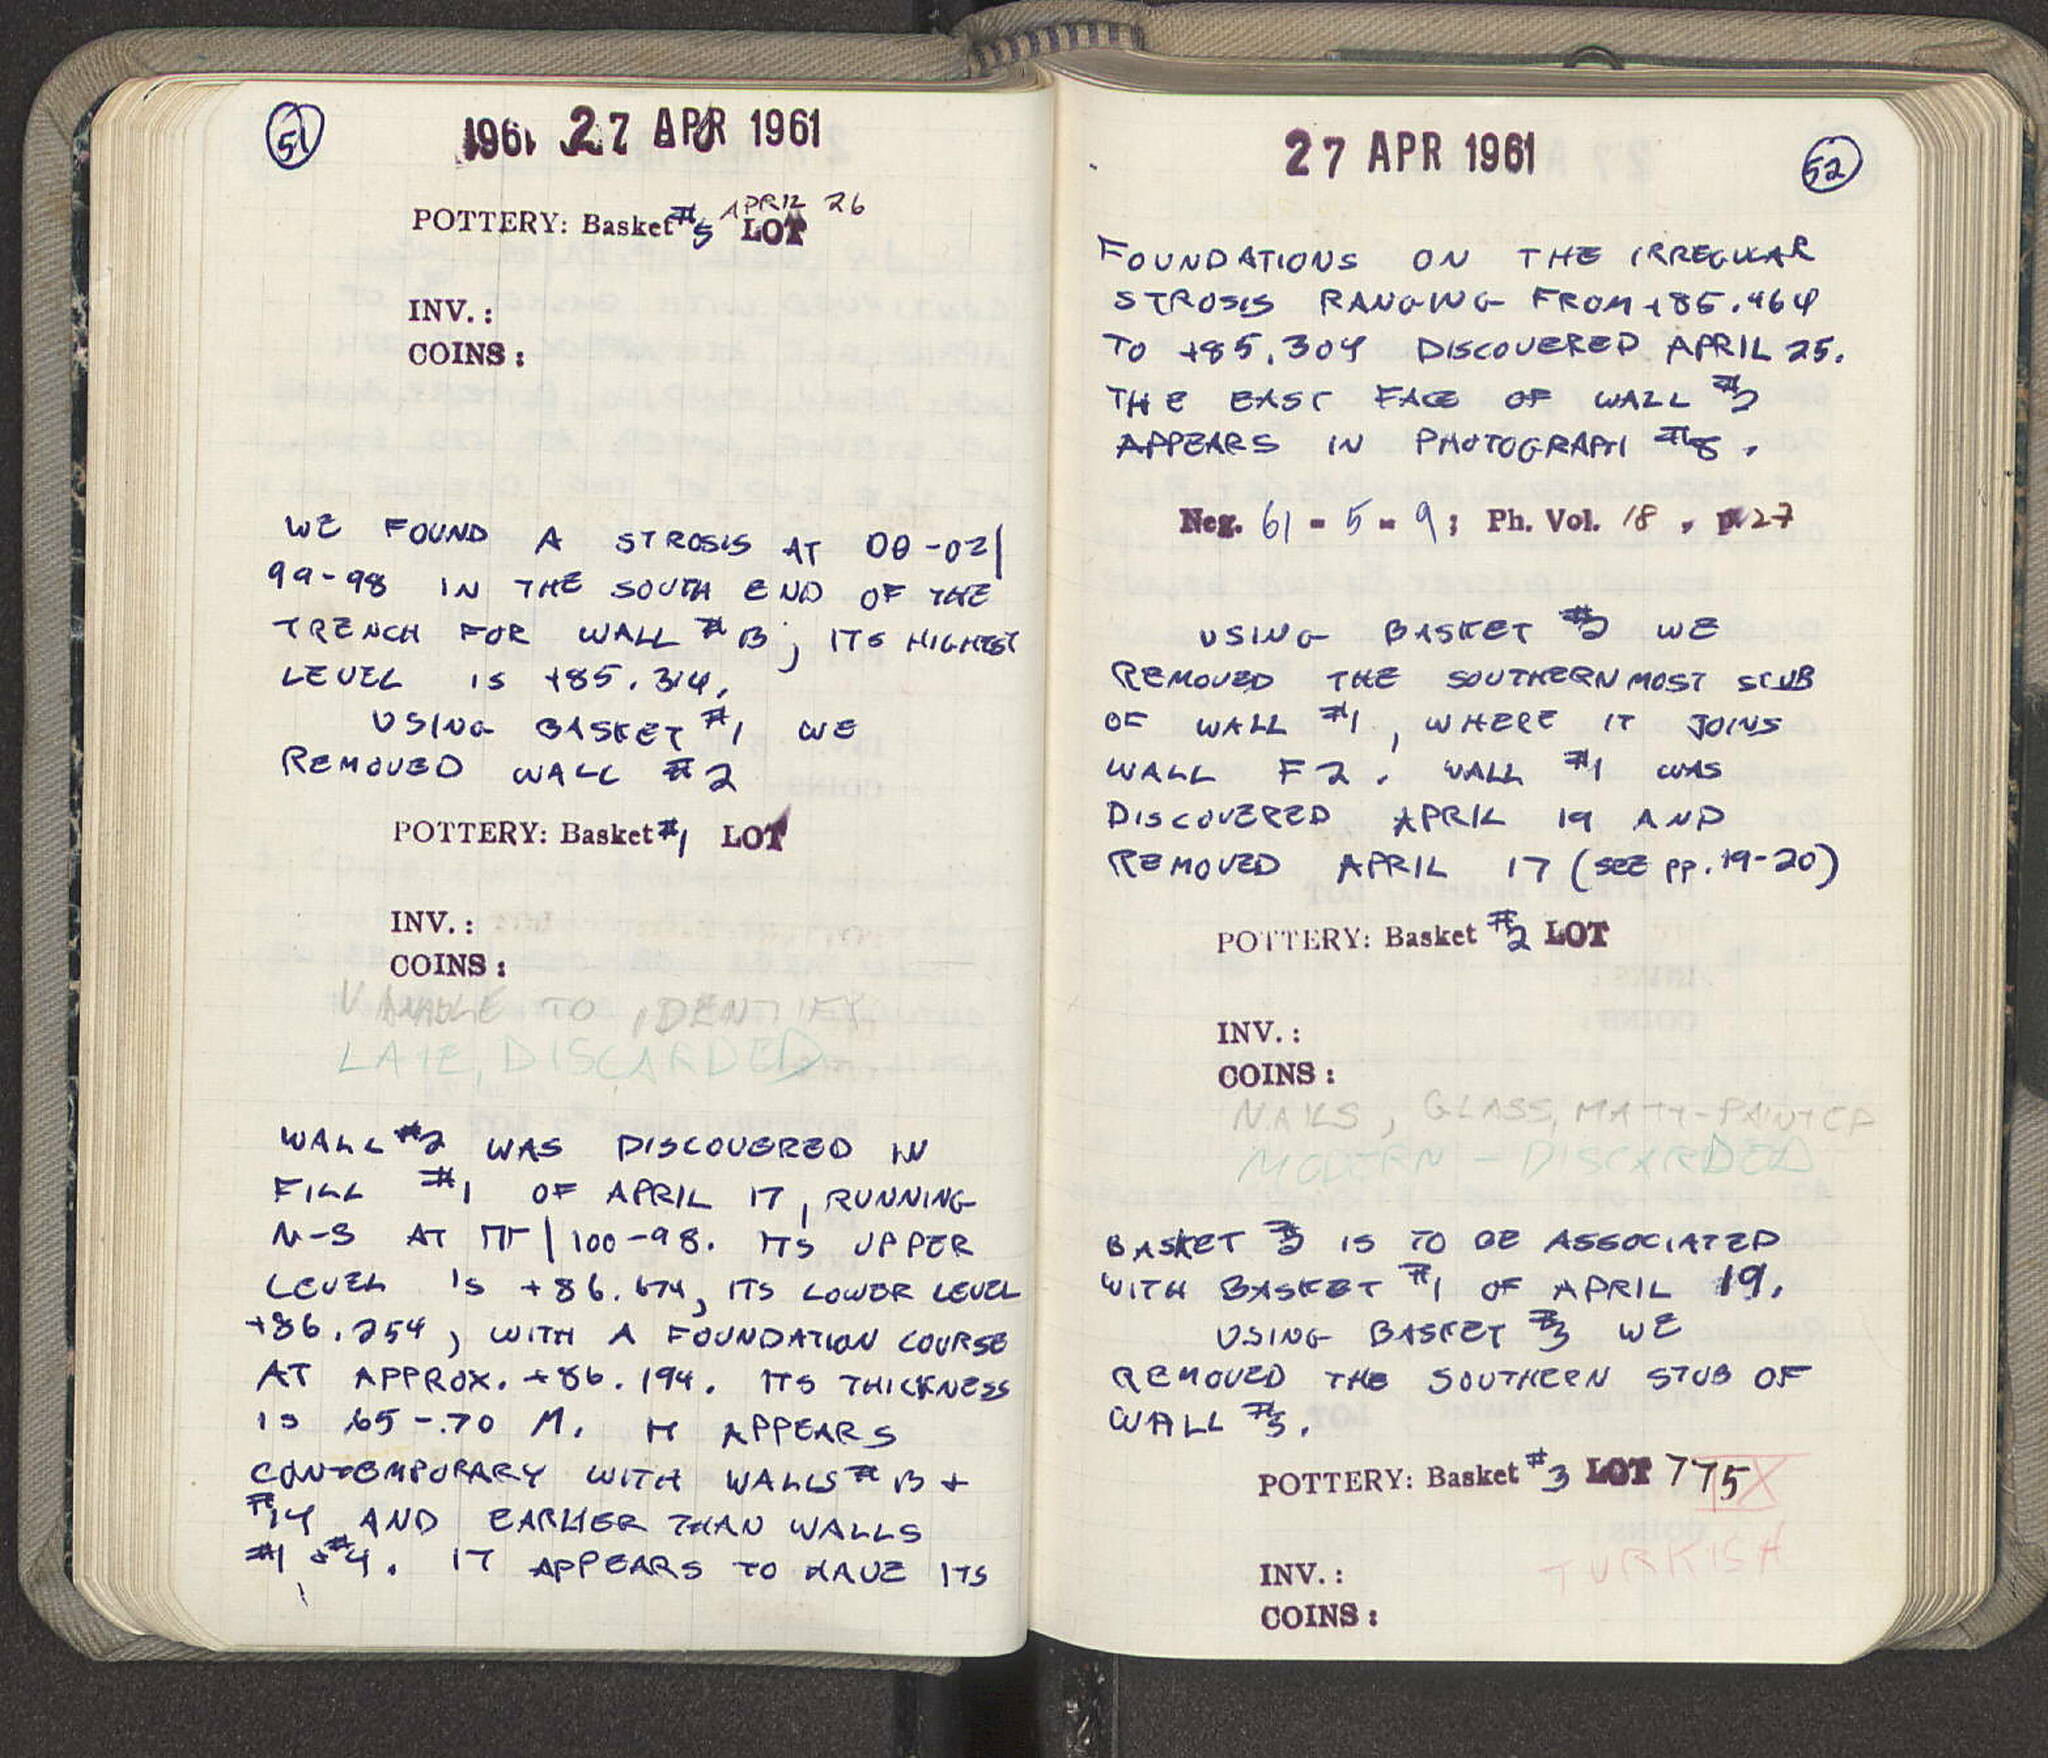 51
1961 27 APR 1961
POTTERY: Basket #5 APRIL 26 LOT
INV.:
COINS:
WE FOUND A STROSIS AT 00-02/
99-98 IN THE SOUTH END OF THE
TRENCH FOR WALL # 13; ITS HIGHEST
LEVEL IS +85.314.
USING BASKET #1 WE
REMOVED WALL #2
POTTERY: Basket #1 LOT
INV.:
COINS:
UNABLE TO IDENTIFY
LATE, DISCARDED
WALL #2 WAS DISCOVERED IN
FILL #1 OF APRIL 17, RUNNING
N-S AT /100-98. ITS UPPER
LEVEL IS +86.674, ITS LOWER LEVEL
+86.254, WITH A FOUNDATION COURSE
AT APPROX. +86.194. ITS THICKNESS
IS .65-.70 M. IT APPEARS
CONTEMPORARY WITH WALLS # 13 +
#14 AND EARLIER THAN WALLS
#1 + #4. IT APPEARS TO HAVE ITS
27 APR 1961
52
FOUNDATIONS ON THE IRREGULAR
STROSIS RANGING FROM +85.464
TO +85.304 DISCOVERED APRIL 25.
THE EAST FACE OF WALL #2
APPEARS IN PHOTOGRAPH #8.
Neg. 61 - 5 - 9; Ph. Vol. 18, p 27
USING BASKET #2 WE
REMOVED THE SOUTHERNMOST STUB
OF WALL #1, WHERE IT JOINS
WALL F2. WALL #1 WAS
DISCOVERED APRIL 19 AND
REMOVED APRIL 17 (SEE PP. 19-20)
POTTERY: Basket #2 LOT
INV.:
COINS:
NAILS, GLASS, MATT-PAINTED
MODERN - DISCARDED
BASKET #2 IS TO BE ASSOCIATED
WITH BASKET #1 OF APRIL 19.
USING BASKET #3 WE
REMOVED THE SOUTHERN STUB OF
WALL #3.
POTTERY: Basket #3 LOT 775 IX
INV.:
TURKISH
COINS: